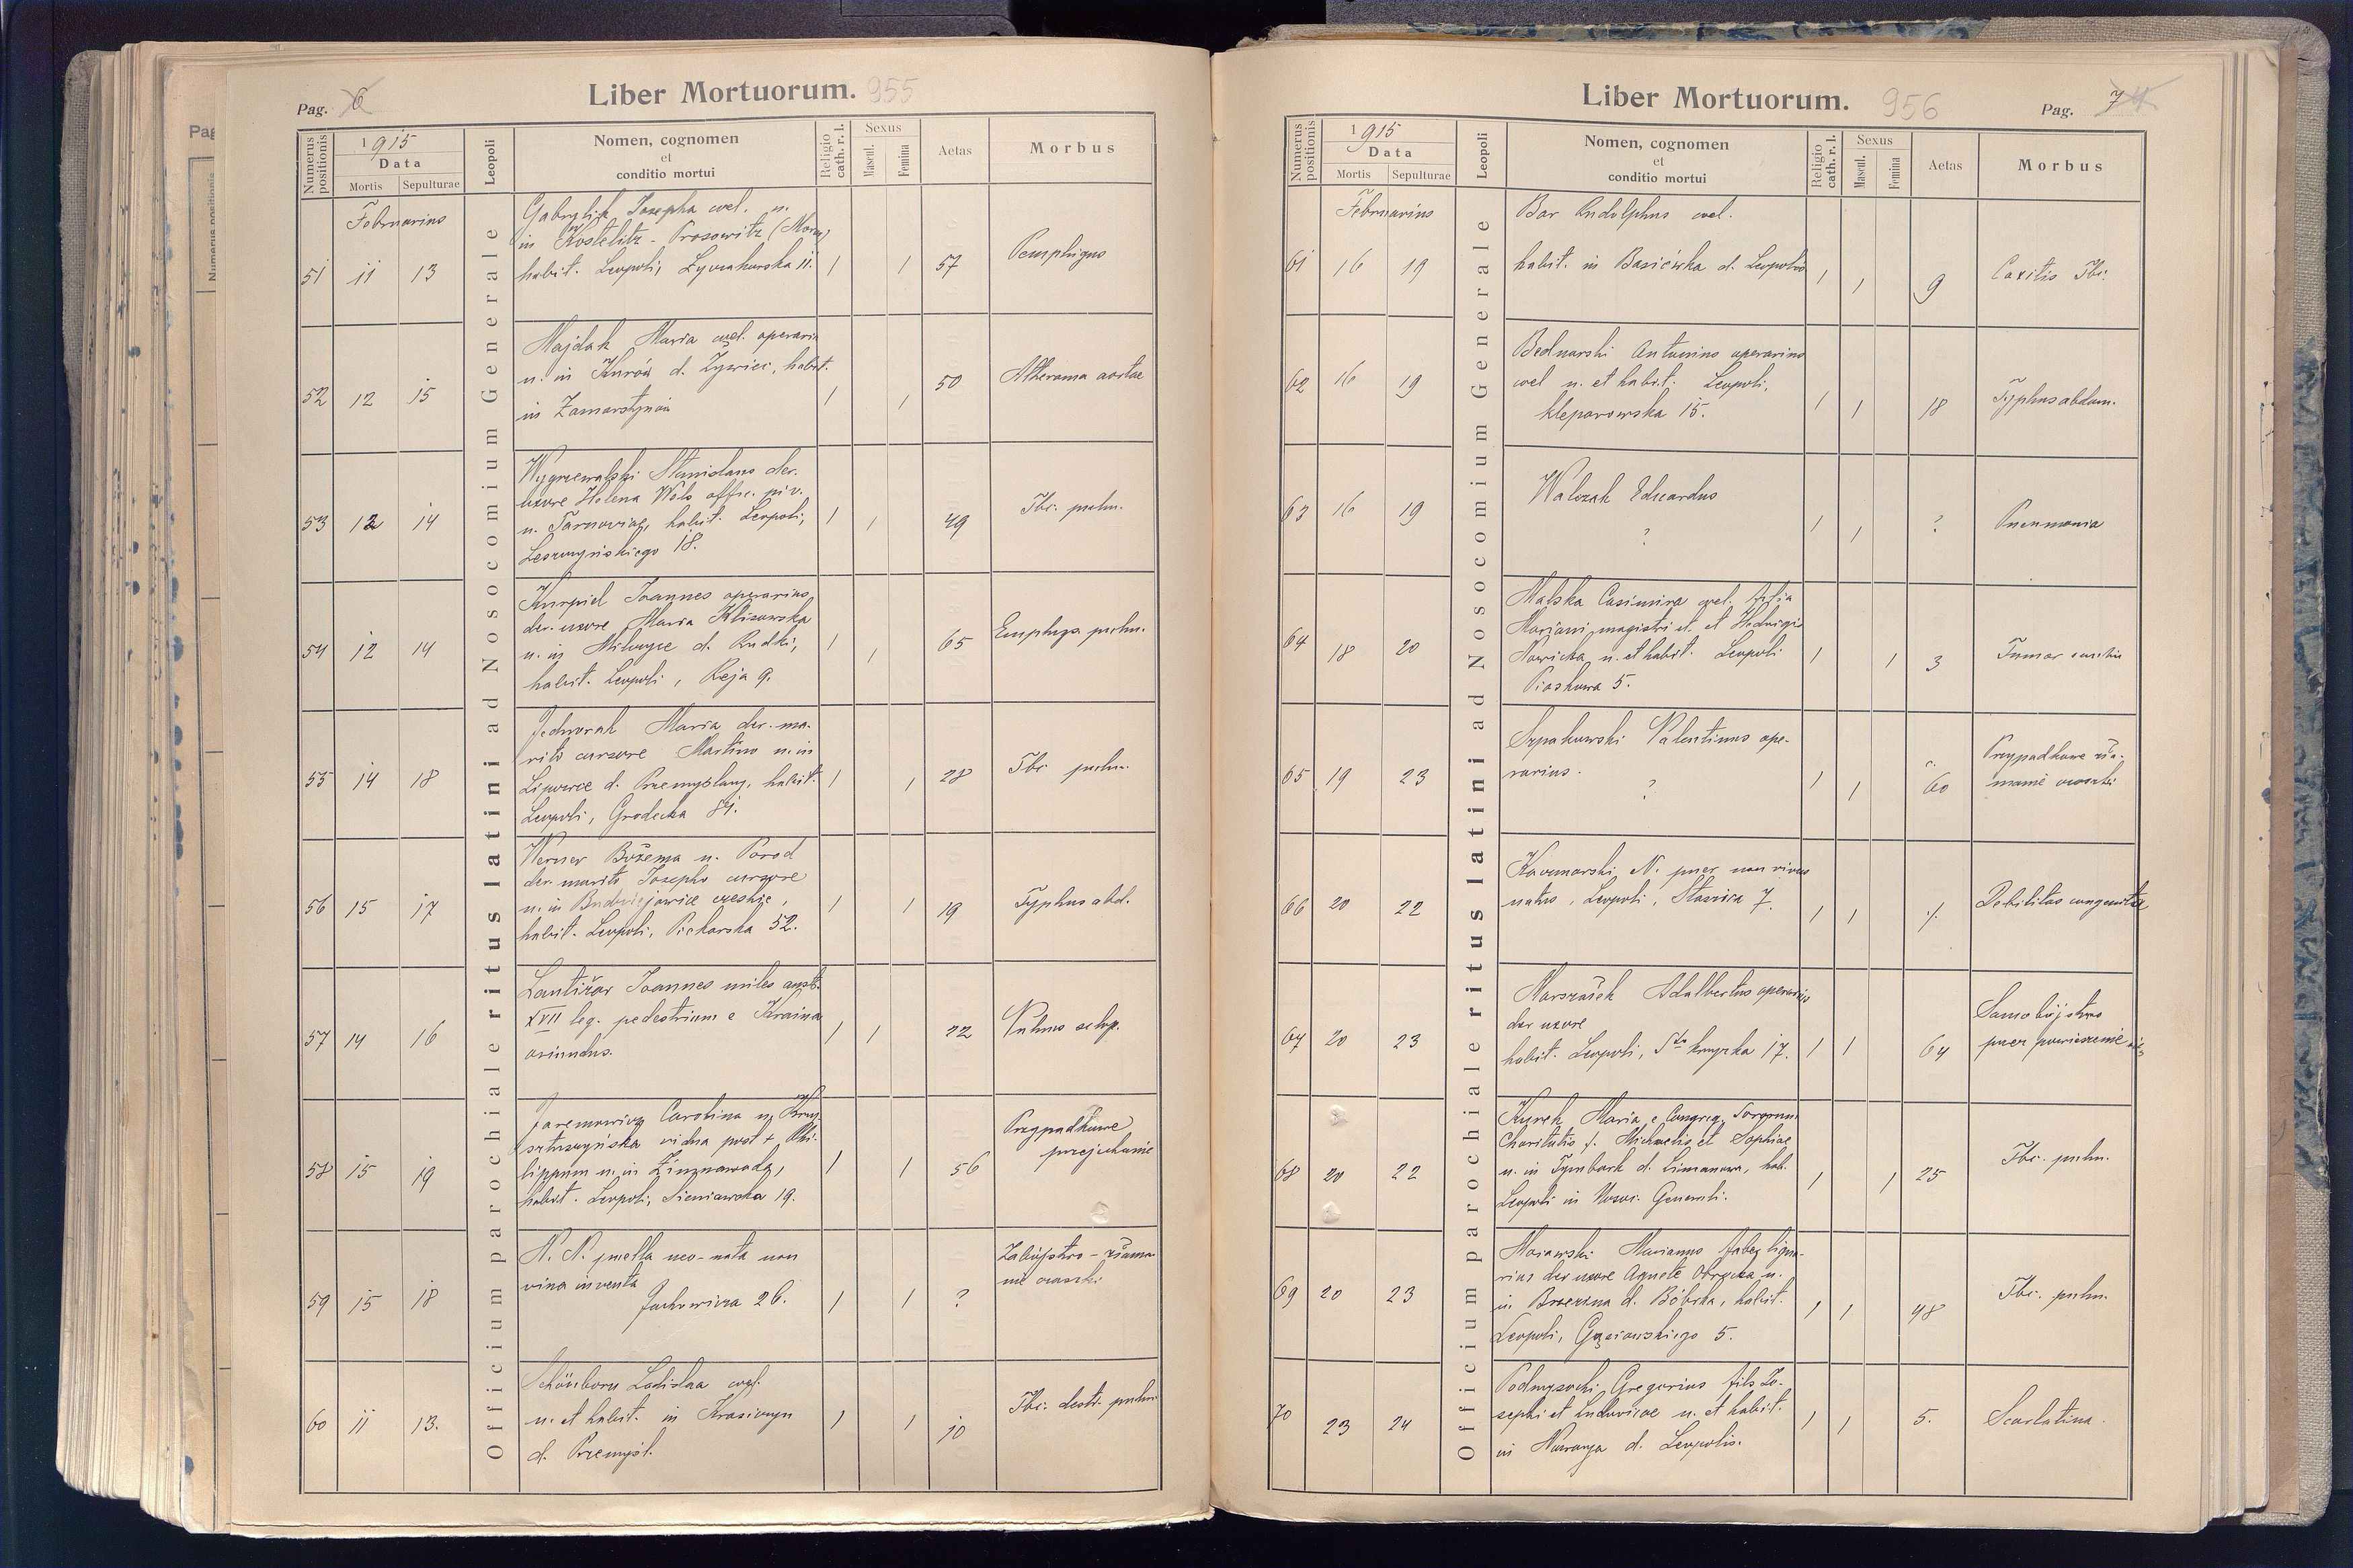 Liber Mortuorum. 955
Pag. 6
Numerus positionis
1915
Data
Mortis
Sepulturae
Leopoli
Nomen, cognomen
et
conditio mortui
Religio
cath. r. l.
Sexus
Mascul.
Femina
Aetas
Morbus
Officium parochiale ritus latini ad Nosocomium Generale
Februarius
51 11 13
Josepha cael. n.
in Kostelitz - Prosowitz (Mor.)
habit. Leopoli, Łyczakowska 11.
1 1 57 Pemphigus
52 12 15
Majdak Maria cael. operaria
n. in Kurów d. Żywiec, habit.
in Zamarstynów
1 1 50 Atheroma aortae
53 12 14
Wygrzewalski Stanislaus der.
uxore Helena Wols offic. priv.
n. Tarnoviae, habit. Leopoli,
Leszczyńskiego 18.
1 1 49 Tbc. pulm.
54 12 14
Kurpiel Joannes operarius
der. uxore Maria Klisowska
n. in Milczyce d. Rudki,
habit. Leopoli, Reja 9.
1 1 65 Emphys. pulm.
55 14 18
Jedworak Maria der. ma-
rito cursore Martino n. in
Lipowce d. Przemyślany, habit.
Leopoli, Grodecka 89.
1 1 28 Tbc. pulm.
56 15 17
Werner Božema n. Porod
der. marito Josepho cursore
n. in Budziejowice czeskie,
habit. Leopoli, Piekarska 52.
1 1 19 Typhus abd.
57 14 16
Lantižar Joannes miles austr.
XVII leg. pedestrium e Kraina
oriundus.
1 1 22 Vulnus sclop.
58 15 19
Jaremowicz Carolina n. Krzy-
sztuszyńska vidua post + Phi-
lippum n. in
habit. Leopoli, Sieniawska 19.
1 1 56 Przypadkowe
przejechanie
59 15 18
N. N. puella neo-nata non
viva inventa
Jachowicza 26.
1 1 ? Zabójstwo - złama-
nie czaszki
60 11 13.
Schönborn Ladislaa cael.
n. et habit. in Krasiczyn
d. Przemyśl.
1 1 10 Tbc. destr. pulm.
Liber Mortuorum. 956
Pag. 7
Numerus positionis
1915
Data
Mortis
Sepulturae
Leopoli
Nomen, cognomen
et
conditio mortui
Religio
cath. r. l.
Sexus
Mascul.
Femina
Aetas
Morbus
Officium parochiale ritus latini ad Nosocomium Generale
Februarius
61 16 19
Bar Rudolphus cael.
habit. in Basiówka d. Leopolis
1 1 9 Coxitis Tbc.
62 16 19
Bednarski Antonius operarius
cael n. et habit. Leopoli,
Kleparowska 15.
1 1 18 Typhus abdom.
63 16 19
Walczak Eduardus
?
1 1 ? Pneumonia
64 18 20
Malska Casimira cael. filia
Mariani magistri et Hedvigis
Nowicka n. et habit. Leopoli
Piaskowa 5.
1 1 3 Tumor
65 19 23
Szpakowski Valentinus ope-
rarius.
?
1 1 c. 60 Przypadkowe zła-
manie czaszki
66 20 22
Kaczmarski N. puer non vivus
natus, Leopoli, Staszica 7.
1 1 ./. Debilitas congenita
67 20 23
Marszałek Adalbertus operarius
der uxore
habit. Leopoli, Sto krzyska 17.
1 1 64 Samobójstwo
przez powieszenie się
68 20 22
Kurek Maria e Congreg. Sororum
Charitatis f. Michaelis et Sophiae
n. in Tymbark d. Limanowa, hab.
Leopoli in Nosoc. Generali.
1 1 25 Tbc. pulm.
69 20 23
Morawski Marianus faber ligna-
rius der uxore Agnete Obrycka n.
in Brzezina d. Bóbrka, habit.
Leopoli, Gąsiorowskiego 5.
1 1 48 Tbc. pulm.
70 23 24
Podwysocki Gregorius fils Jo-
sephi et Ludovicae n. et habit.
in Nawarya d. Leopolis.
1 1 5. Scarlatina.